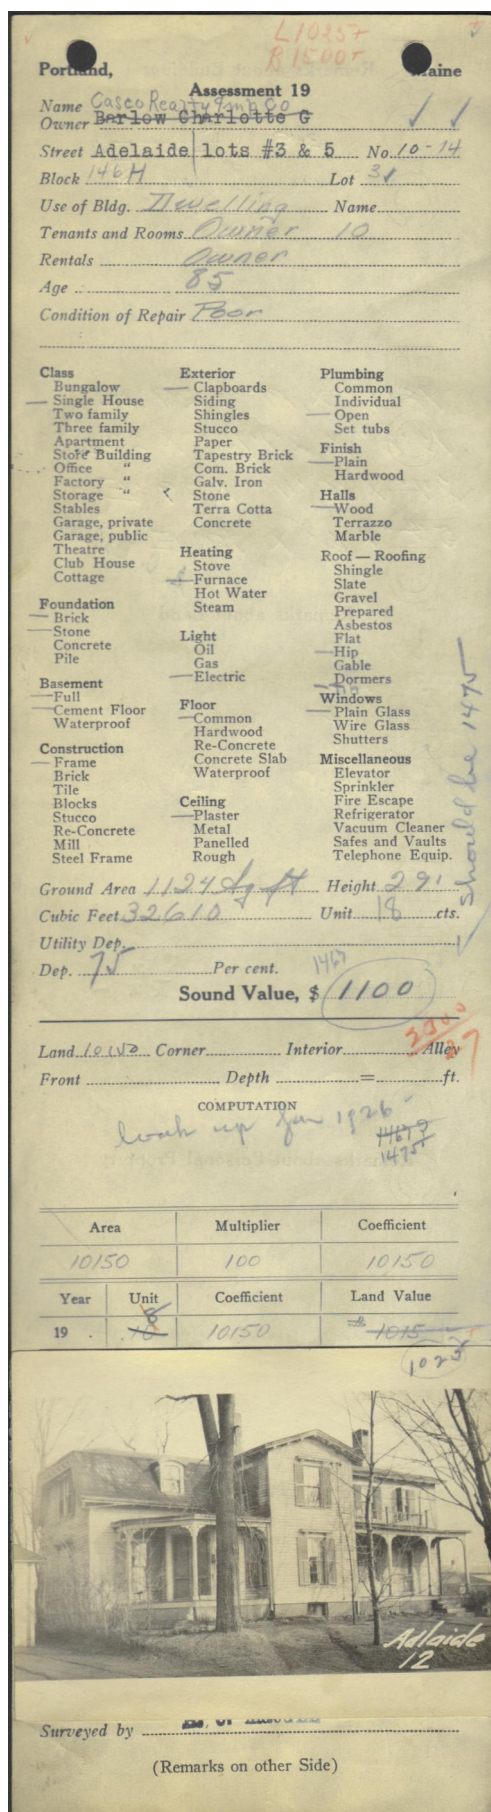 L1025+
B1500+
Portland, Maine
Assessment 19
Name Casco Realty Co
Owner Barlow Charlotte G
Street Adelaide lots #3 & 5 No. 10-14
Block 146H Lot 31
Use of Bldg. Dwelling Name
Tenants and Rooms Owner 10
Rentals Owner
Age 85
Condition of Repair Poor
Class
Bungalow
Single House
Two family
Three family
Apartment
Store Building
Office "
Factory "
Storage "
Stables
Garage, private
Garage, public
Theatre
Club House
Cottage
Foundation
Brick
Stone
Concrete
Pile
Basement
Full
Cement Floor
Waterproof
Construction
Frame
Brick
Tile
Blocks
Stucco
Re-Concrete
Mill
Steel Frame
Exterior
Clapboards
Siding
Shingles
Stucco
Paper
Tapestry Brick
Com. Brick
Galv. Iron
Stone
Terra Cotta
Concrete
Heating
Stove
Furnace
Hot Water
Steam
Light
Oil
Gas
Electric
Floor
Common
Hardwood
Re-Concrete
Concrete Slab
Waterproof
Ceiling
Plaster
Metal
Panelled
Rough
Plumbing
Common
Individual
Open
Set tubs
Finish
Plain
Hardwood
Halls
Wood
Terrazzo
Marble
Roof — Roofing
Shingle
Slate
Gravel
Prepared
Asbestos
Flat
Hip
Gable
Dormers
Windows
Plain Glass
Wire Glass
Shutters
Miscellaneous
Elevator
Sprinkler
Fire Escape
Refrigerator
Vacuum Cleaner
Safes and Vaults
Telephone Equip.
Should be 1475
Ground Area 1124 Sq ft Height 29'
Cubic Feet 32610 Unit 18 cts.
Utility Dep.
Dep. 75 Per cent. 1467
Sound Value, $ 1100
2300
27
Land 10150 Corner Interior Alley
Front Depth = ft.
COMPUTATION
look up for 1926
1467
1475
Area Multiplier Coefficient
10150 100 10150
Year Unit Coefficient Land Value
8
19 . 10 10150 1015
1025
Adlaide
12
Surveyed by
(Remarks on other Side)